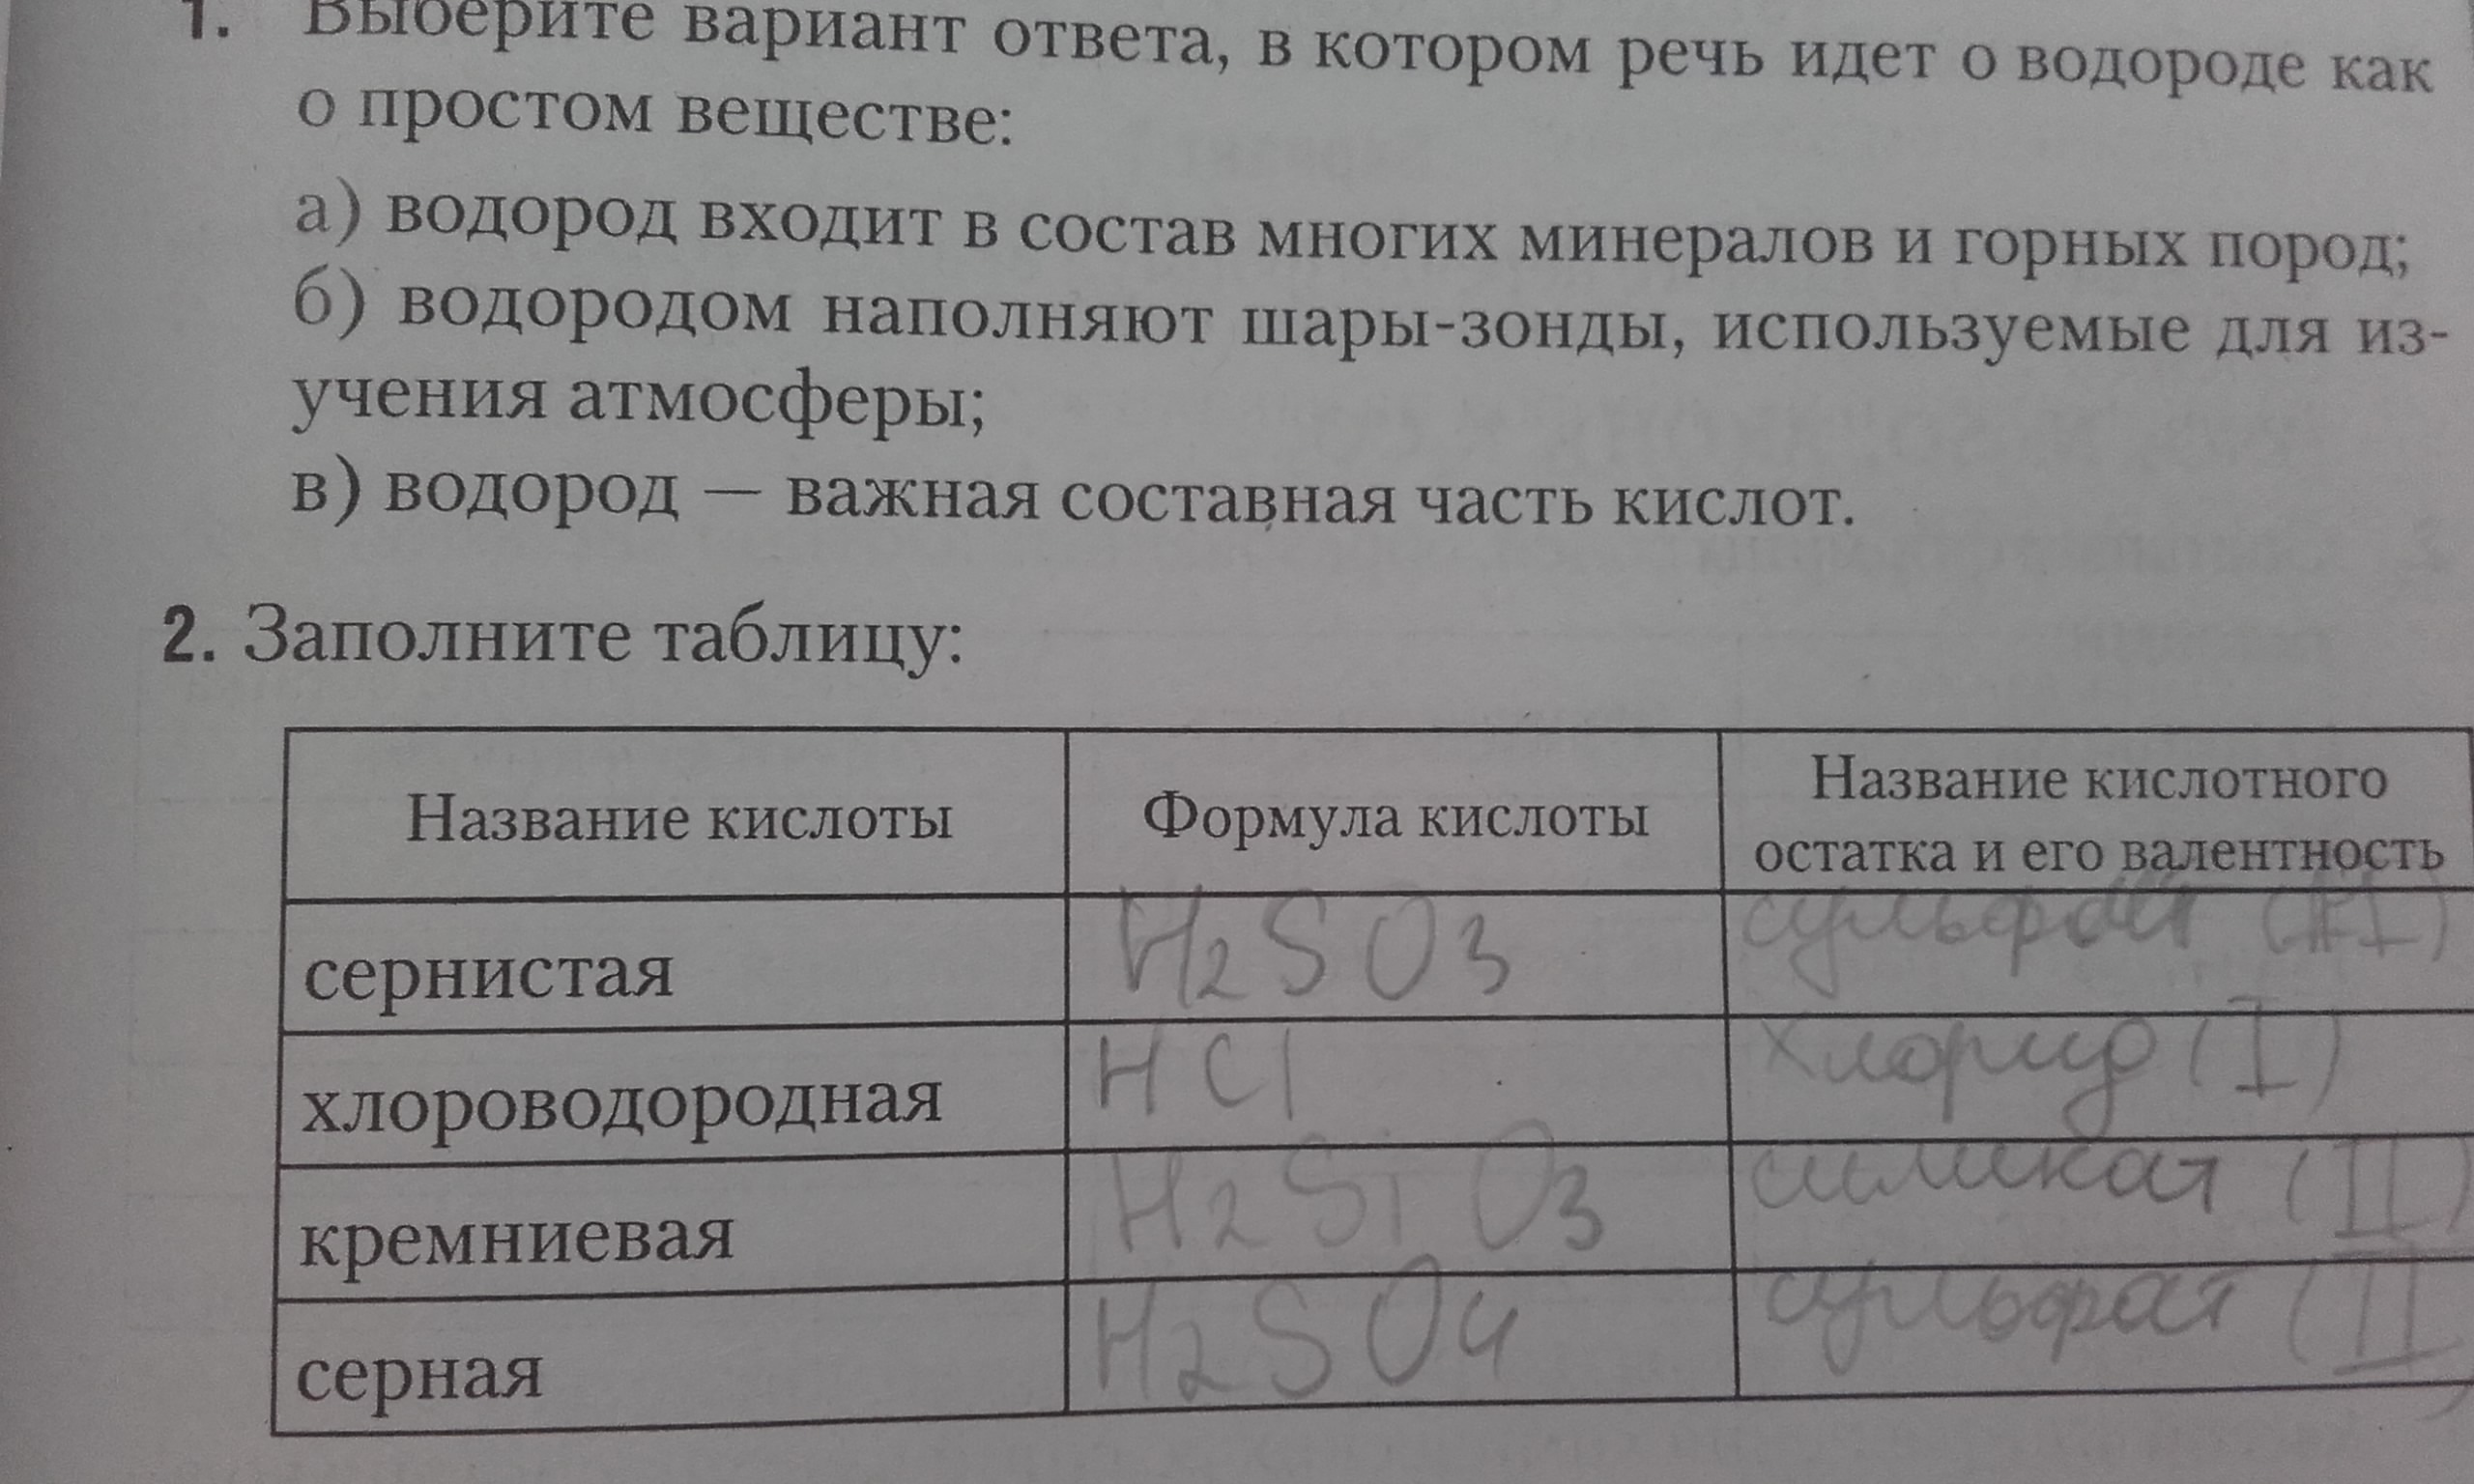 1. Выберите вариант ответа, в котором речь идет о водороде как
о простом веществе:
а) водород входит в состав многих минералов и горных пород;
б) водородом наполняют шары-зонды, используемые для из-
учения атмосферы;
в) водород — важная составная часть кислот.
2. Заполните таблицу:
Название кислоты
Формула кислоты
Название кислотного
остатка и его валентность
сернистая
H2SO3
хлороводородная
HCl
хлорид (I)
кремниевая
H2SiO3
силикат (II)
серная
H2SO4
сульфат (II)